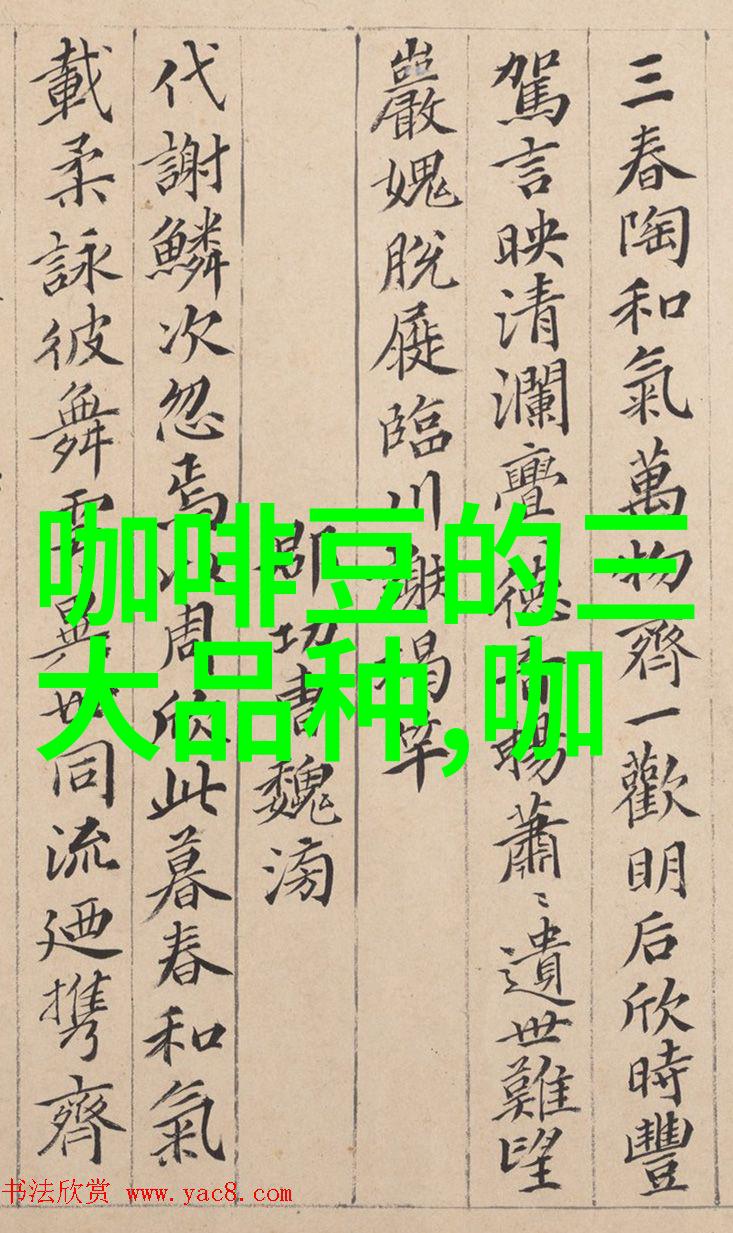 三春陶和氣萬物齊一歡明后欣時豐
駕言映清瀾亹〻德音暢蕭〻遺世難望
巖媿脫屣臨川謝揭竿
郡功曹魏滂
代謝鱗次忽焉以周欣此暮春和氣
載柔詠彼舞雩異世同流廼携齊
咖啡豆的三
大品种,咖
书法欣赏 www.yac8.com